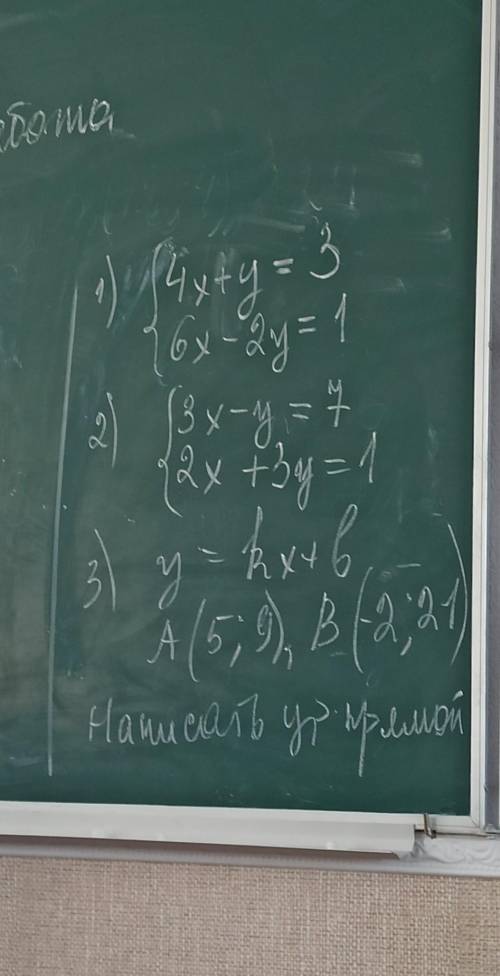 1) { 4x+y = 3
6x - 2y = 1
2) { 3x - y = 7
2x + 3y = 1
3) y = kx+b
A(5; 9), B(-2; 21)
Написать ур. прямой